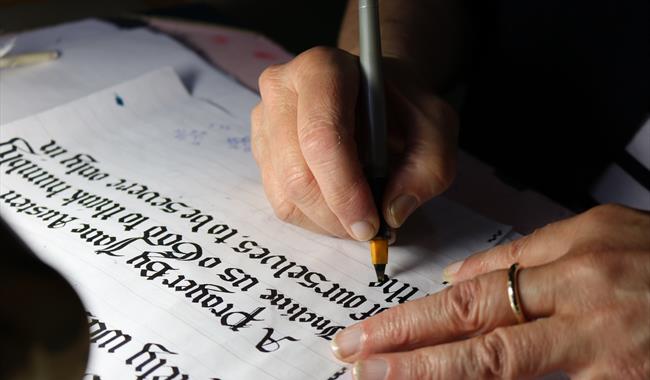 A prayer By Jane Austen
Incline us o God to think humbly
of ourselves, to be severe only in
the